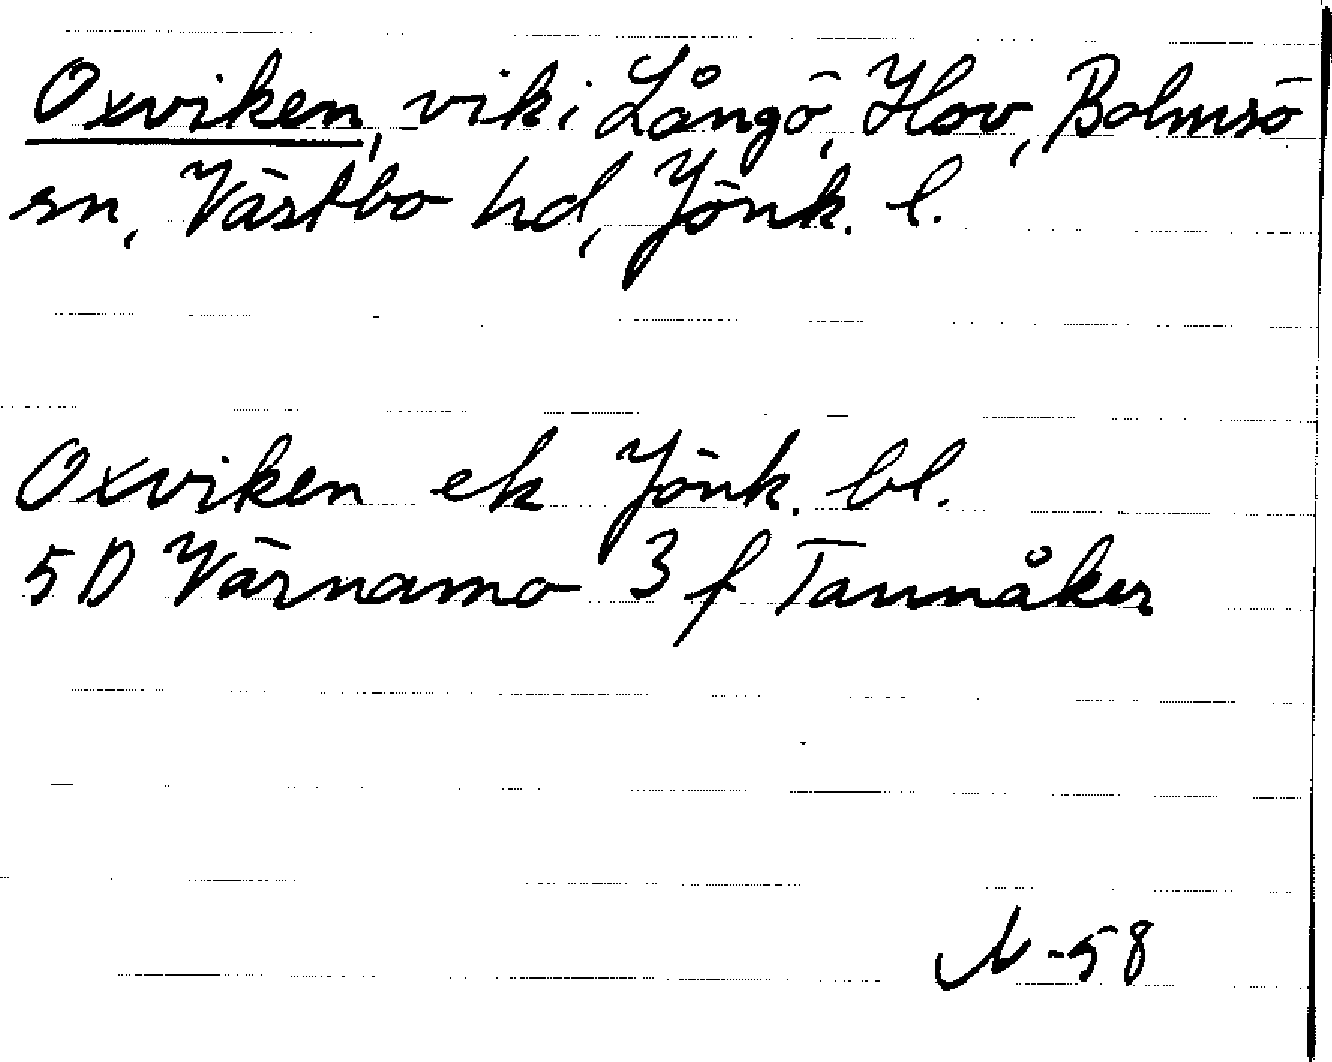 Oxviken, vik i Långö, Hov, Bolmsö
sn, Västbo hd, Jönk. l.
Oxviken ek Jönk. bl.
5D Värnamo 3f Tannåker
N-58